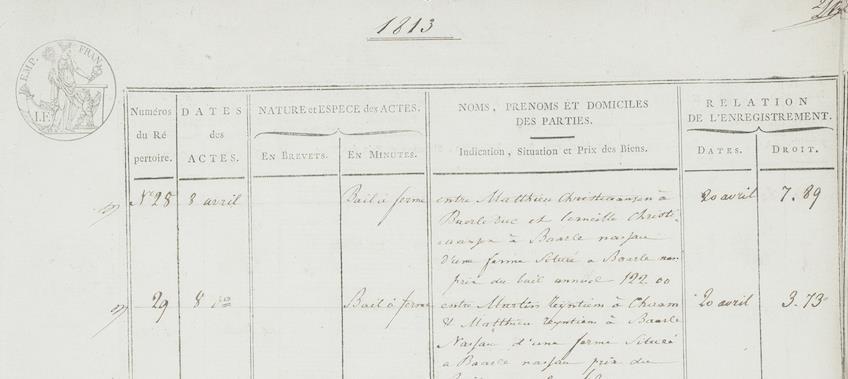 1813
EMP. FRAN.
Numéros du Ré pertoire.
DATES des ACTES.
NATURE et ESPECE des ACTES.
EN BREVETS.
EN MINUTES.
NOMS, PRENOMS ET DOMICILES
DES PARTIES.
Indication, Situation et Prix des Biens.
RELATION
DE L'ENREGISTREMENT.
DATES.
DROIT.
No 28 8 avril Bail à ferme entre Matthieu à 20 avril 7.89
et Christi-
à Baarle nassau
d'une ferme Situé a Baarle nas
prix du bail annuel 122.00
29 8 do Bail à ferme entre Martin à Chaam 20 avril 3.73
& Matthieu à Baarle
Nassau d'une ferme Situé
a Baarle nassau prix du